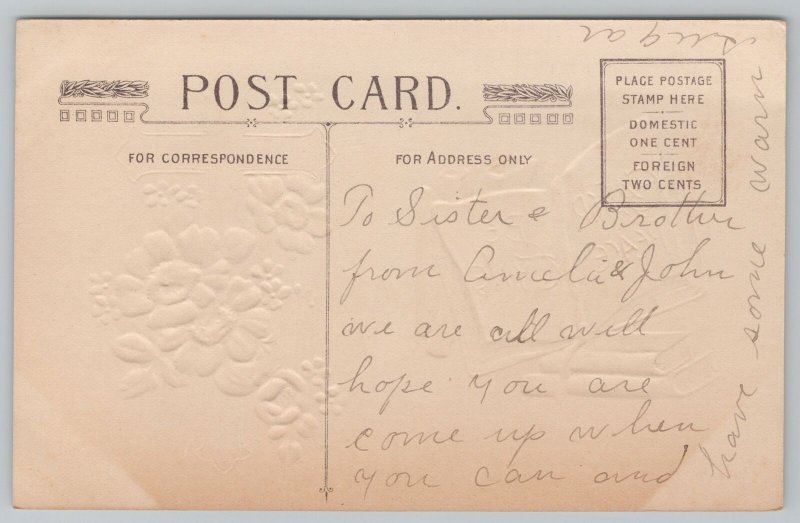 POST CARD.
FOR CORRESPONDENCE
FOR ADDRESS ONLY
PLACE POSTAGE
STAMP HERE
DOMESTIC
ONE CENT
FOREIGN
TWO CENTS
To Sister & Brother
from Amelia & John
we are all well
hope you are
come up when
you can and
have some warm
sugar